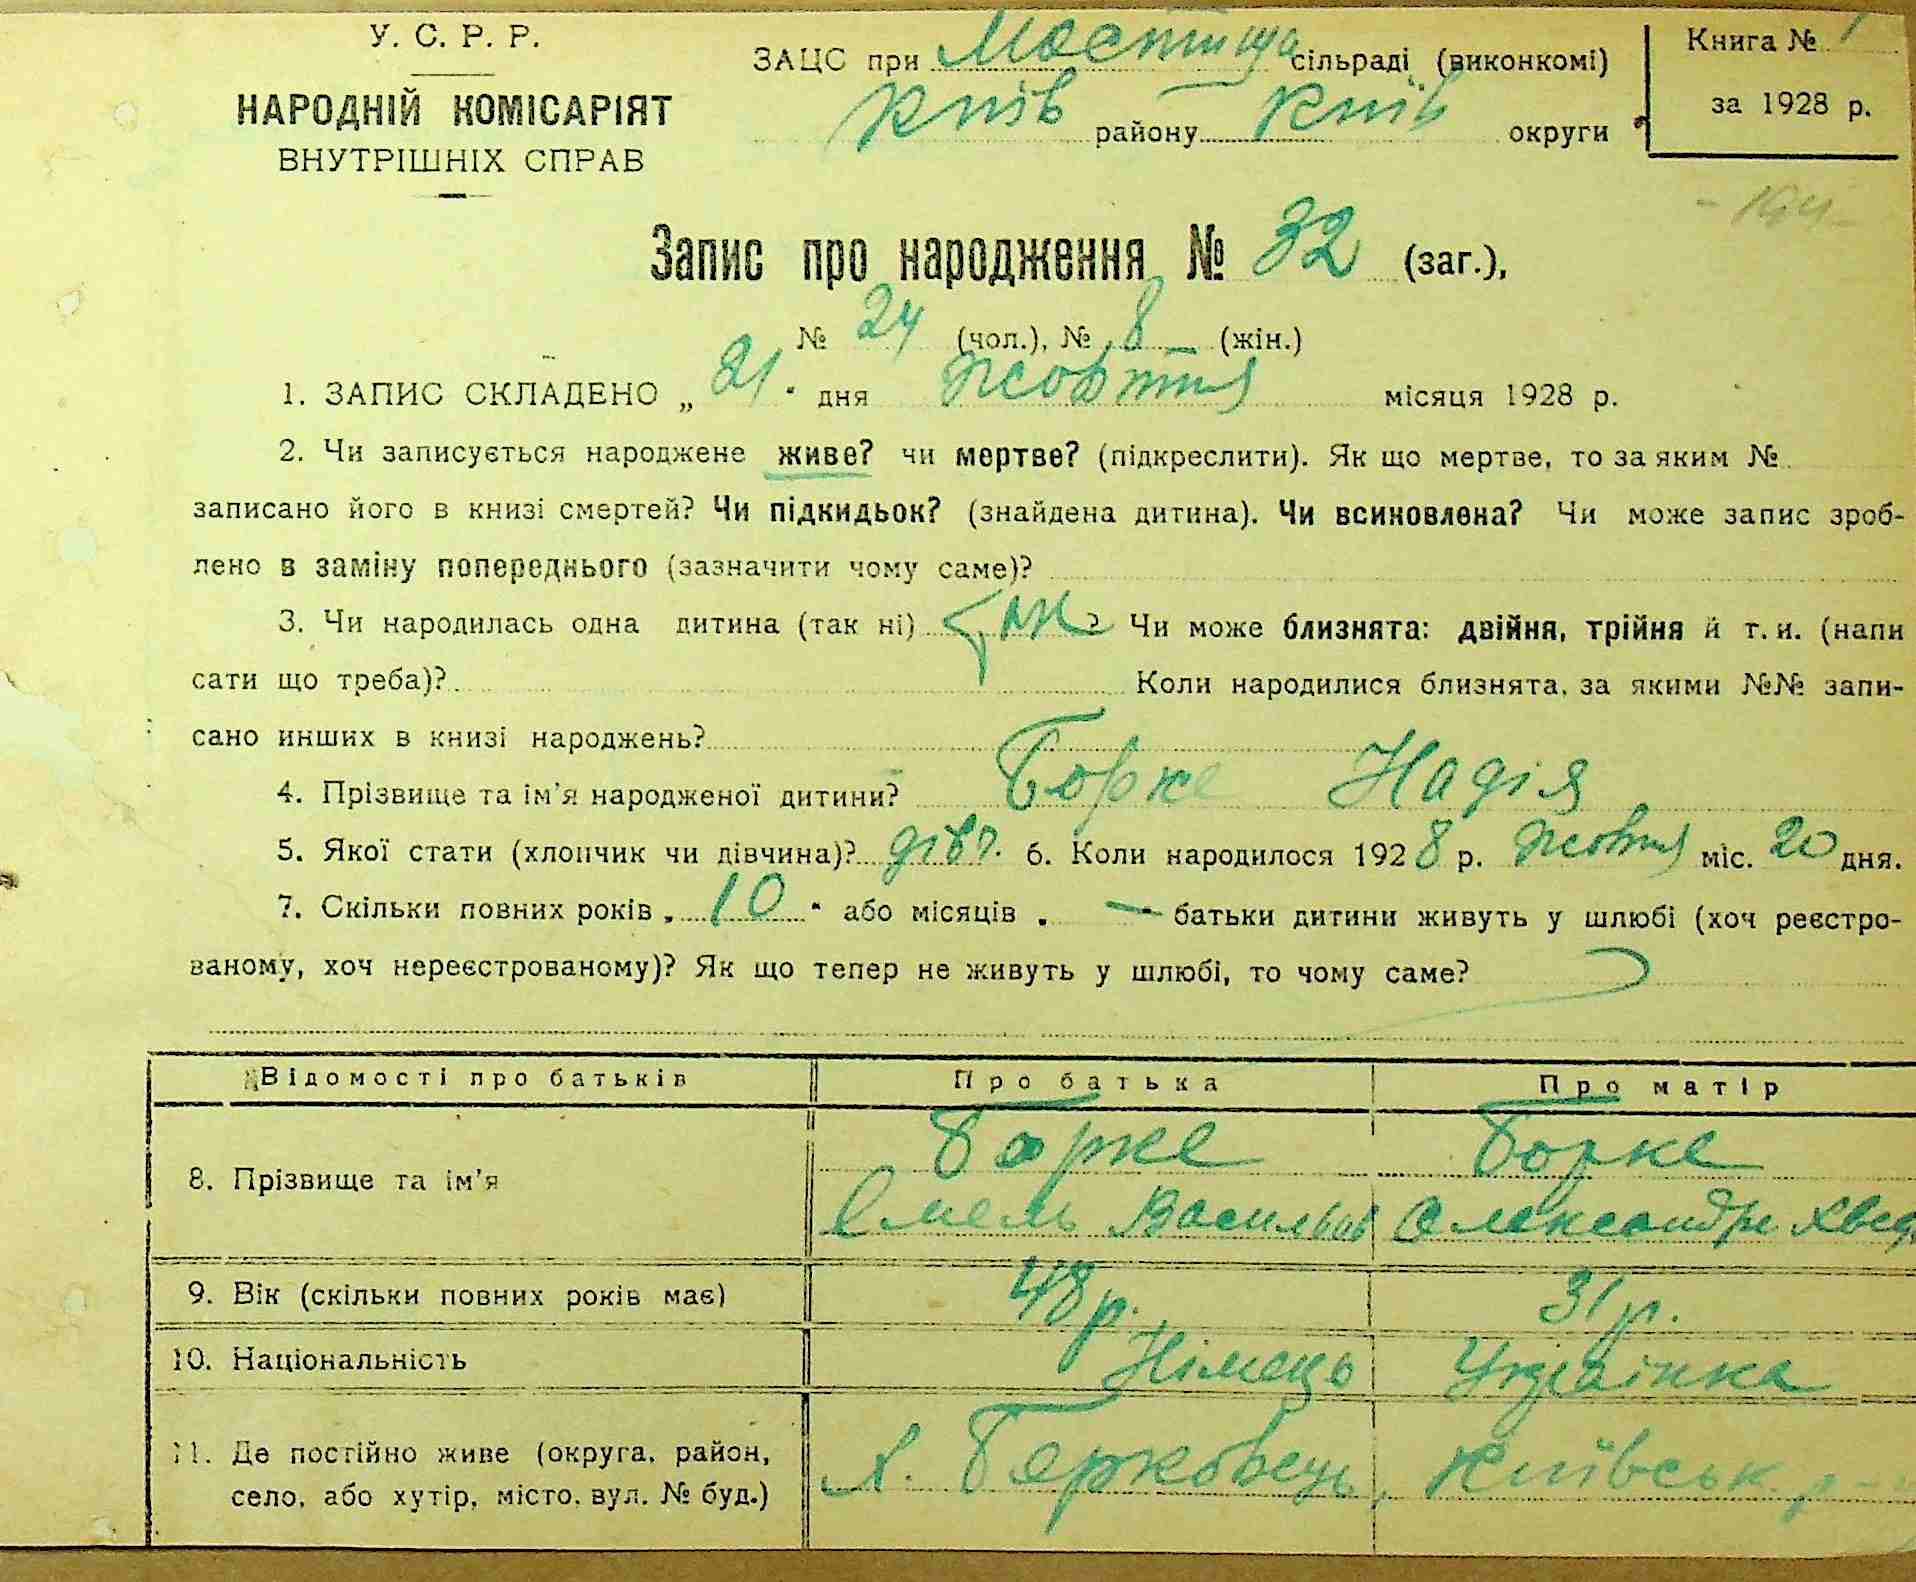 У. С. Р. Р.
НАРОДНІЙ КОМІСАРІЯТ
ВНУТРІШНІХ СПРАВ
ЗАЦС при Мостища сільраді (виконкомі)
Київ району Київ округи
Книга № 1
за 1928 р.
Запис про народження № 32 (заг.),
№ 24 (чол.), № 8 (жін.)
1. ЗАПИС СКЛАДЕНО „ 21 " дня жовтня місяця 1928 р.
2. Чи записується народжене живе? чи мертве? (підкреслити). Як що мертве, то за яким №
записано його в книзі смертей? Чи підкидьок? (знайдена дитина). Чи всиновлена? Чи може запис зроб-
лено в заміну попереднього (зазначити чому саме)?
3. Чи народилась одна дитина (так ні) так? Чи може близнята: двійня, трійня й т. и. (напи
сати що треба)? Коли народилися близнята, за якими №№ запи-
сано инших в книзі народжень?
4. Прізвище та ім'я народженої дитини? Борке Надія
5. Якої стати (хлопчик чи дівчина)? дівч. 6. Коли народилося 1928 р. жовтня міс. 20 дня.
7. Скільки повних років „ 10 " або місяців „ — " батьки дитини живуть у шлюбі (хоч реєстро-
ваному, хоч нереєстрованому)? Як що тепер не живуть у шлюбі, то чому саме?
Відомості про батьків Про батька Про матір
8. Прізвище та ім'я Борке Борке
Емель Васильов Олександра Хвед
9. Вік (скільки повних років має) 48 р. 31 р.
10. Національність Німець Українка
11. Де постійно живе (округа, район,
село, або хутір, місто, вул. № буд.) х. Берковець, Київськ. р-н